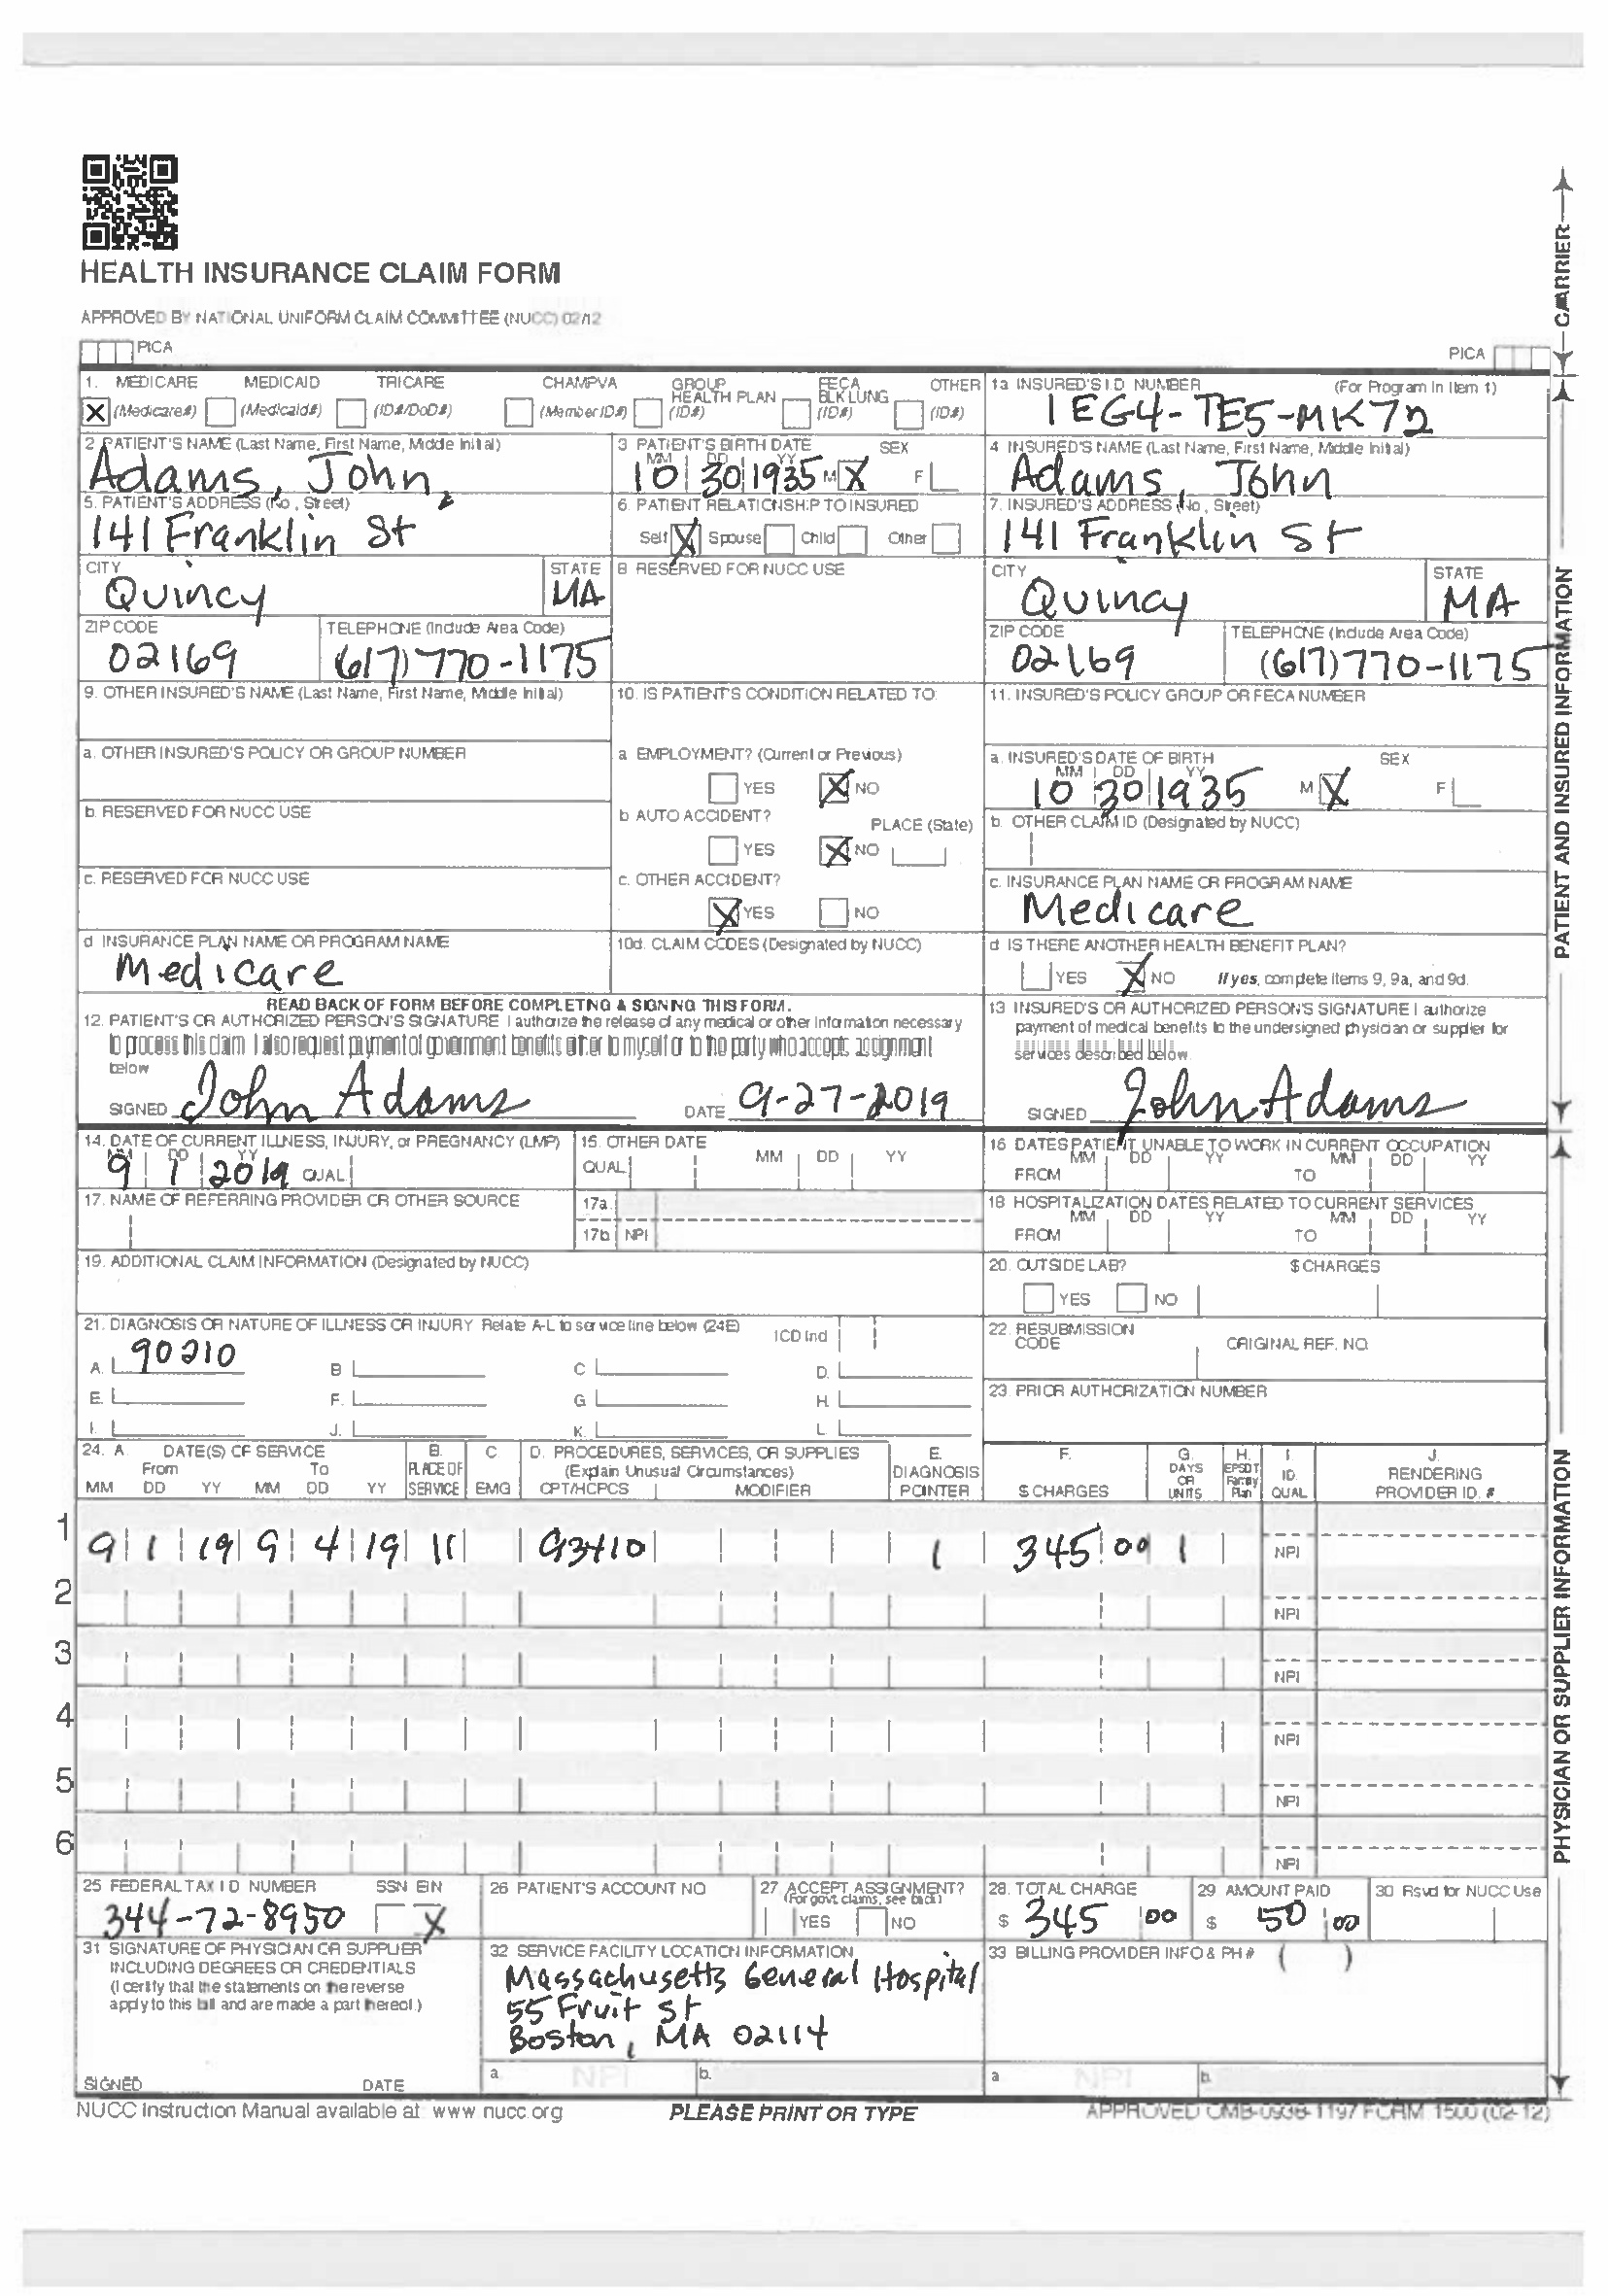 HEALTH INSURANCE CLAIM FORM
APPROVED BY NATIONAL UNIFORM CLAIM COMMITTEE (NUCC) 02/12
PICA PICA
CARRIER
1. MEDICARE MEDICAID TRICARE CHAMPVA GROUP HEALTH PLAN FECA BLK LUNG OTHER
(Medicare#) (Medicaid#) (ID#/DoD#) (Member ID#) (ID#) (ID#) (ID#)
X
1a INSURED'S I.D. NUMBER (For Program in Item 1)
1EG4-TE5-MK72
2 PATIENT'S NAME (Last Name, First Name, Middle Initial)
Adams, John,
3 PATIENT'S BIRTH DATE SEX
MM DD YY
10 30 1935 M X F
4 INSURED'S NAME (Last Name, First Name, Middle Initial)
Adams, John
5. PATIENT'S ADDRESS (No., Street)
141 Franklin St
6. PATIENT RELATIONSHIP TO INSURED
Self X Spouse Child Other
7. INSURED'S ADDRESS (No., Street)
141 Franklin St
CITY STATE
Quincy MA
8 RESERVED FOR NUCC USE
CITY STATE
Quincy MA
ZIP CODE TELEPHONE (Include Area Code)
02169 (617) 770-1175
ZIP CODE TELEPHONE (Include Area Code)
02169 (617) 770-1175
9. OTHER INSURED'S NAME (Last Name, First Name, Middle Initial)
10. IS PATIENT'S CONDITION RELATED TO:
11. INSURED'S POLICY GROUP OR FECA NUMBER
a. OTHER INSURED'S POLICY OR GROUP NUMBER
a EMPLOYMENT? (Current or Previous)
YES X NO
a. INSURED'S DATE OF BIRTH SEX
MM DD YY
10 30 1935 M X F
b. RESERVED FOR NUCC USE
b AUTO ACCIDENT? PLACE (State)
YES X NO
b. OTHER CLAIM ID (Designated by NUCC)
c. RESERVED FOR NUCC USE
c. OTHER ACCIDENT?
X YES NO
c. INSURANCE PLAN NAME OR PROGRAM NAME
Medicare
d INSURANCE PLAN NAME OR PROGRAM NAME
Medicare
10d. CLAIM CODES (Designated by NUCC)
d IS THERE ANOTHER HEALTH BENEFIT PLAN?
YES X NO If yes, complete items 9, 9a, and 9d.
READ BACK OF FORM BEFORE COMPLETING & SIGNING THIS FORM.
12. PATIENT'S OR AUTHORIZED PERSON'S SIGNATURE I authorize the release of any medical or other information necessary
to process this claim. I also request payment of government benefits either to myself or to the party who accepts assignment
below
SIGNED John Adams DATE 9-27-2019
13 INSURED'S OR AUTHORIZED PERSON'S SIGNATURE I authorize
payment of medical benefits to the undersigned physician or supplier for
services described below.
SIGNED John Adams
PATIENT AND INSURED INFORMATION
14. DATE OF CURRENT ILLNESS, INJURY, or PREGNANCY (LMP)
MM DD YY
9 1 2019 QUAL.
15. OTHER DATE
QUAL. MM DD YY
16 DATES PATIENT UNABLE TO WORK IN CURRENT OCCUPATION
MM DD YY MM DD YY
FROM TO
17. NAME OF REFERRING PROVIDER OR OTHER SOURCE
17a.
17b NPI
18 HOSPITALIZATION DATES RELATED TO CURRENT SERVICES
MM DD YY MM DD YY
FROM TO
19. ADDITIONAL CLAIM INFORMATION (Designated by NUCC)
20. OUTSIDE LAB? $ CHARGES
YES NO
21. DIAGNOSIS OR NATURE OF ILLNESS OR INJURY Relate A-L to service line below (24E) ICD Ind
A. 90210 B C D.
E. F. G H.
I. J. K. L.
22. RESUBMISSION CODE ORIGINAL REF. NO.
23. PRIOR AUTHORIZATION NUMBER
24. A. DATE(S) OF SERVICE B. C D. PROCEDURES, SERVICES, OR SUPPLIES E. F. G. H. I. J.
From To PLACE OF (Explain Unusual Circumstances) DIAGNOSIS DAYS OR UNITS EPSDT Family Plan ID. QUAL RENDERING
MM DD YY MM DD YY SERVICE EMG CPT/HCPCS MODIFIER POINTER $ CHARGES PROVIDER ID. #
1 9 1 19 9 4 19 11 93410 1 345 00 1 NPI
2 NPI
3 NPI
4 NPI
5 NPI
6 NPI
25 FEDERAL TAX I D NUMBER SSN EIN
344-72-8950 X
26 PATIENT'S ACCOUNT NO
27 ACCEPT ASSIGNMENT?
(For govt. claims, see back)
YES NO
28. TOTAL CHARGE
$ 345 00
29 AMOUNT PAID
$ 50 00
30 Rsvd for NUCC Use
31 SIGNATURE OF PHYSICIAN OR SUPPLIER
INCLUDING DEGREES OR CREDENTIALS
(I certify that the statements on the reverse
apply to this bill and are made a part thereof.)
SIGNED DATE
32 SERVICE FACILITY LOCATION INFORMATION
Massachusetts General Hospital
55 Fruit St
Boston, MA 02114
a. NPI b.
33 BILLING PROVIDER INFO & PH # ( )
a NPI b.
PHYSICIAN OR SUPPLIER INFORMATION
NUCC Instruction Manual available at: www nucc.org PLEASE PRINT OR TYPE APPROVED OMB-0938-1197 FORM 1500 (02-12)